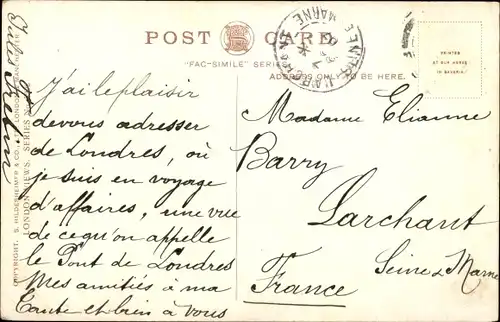 POST CARD
"FAC-SIMILE" SERIES
ADDRESS ONLY TO BE HERE.
PRINTED
AT OUR WORKS
IN BAVARIA.
MARNE
J'ai le plaisir
de vous adresser
de Londres, où
je suis en voyage
d'affaires, une vue
de ce qu'on appelle
le Pont de Londres
Mes amitiés à ma
Tante et bien à vous
Jules
Madame Elianne
Barry
Larchant
Seine & Marne
France
COPYRIGHT. S. HILDESHEIMER & CO., LTD. LONDON & MANCHESTER
LONDON VIEWS. SERIES